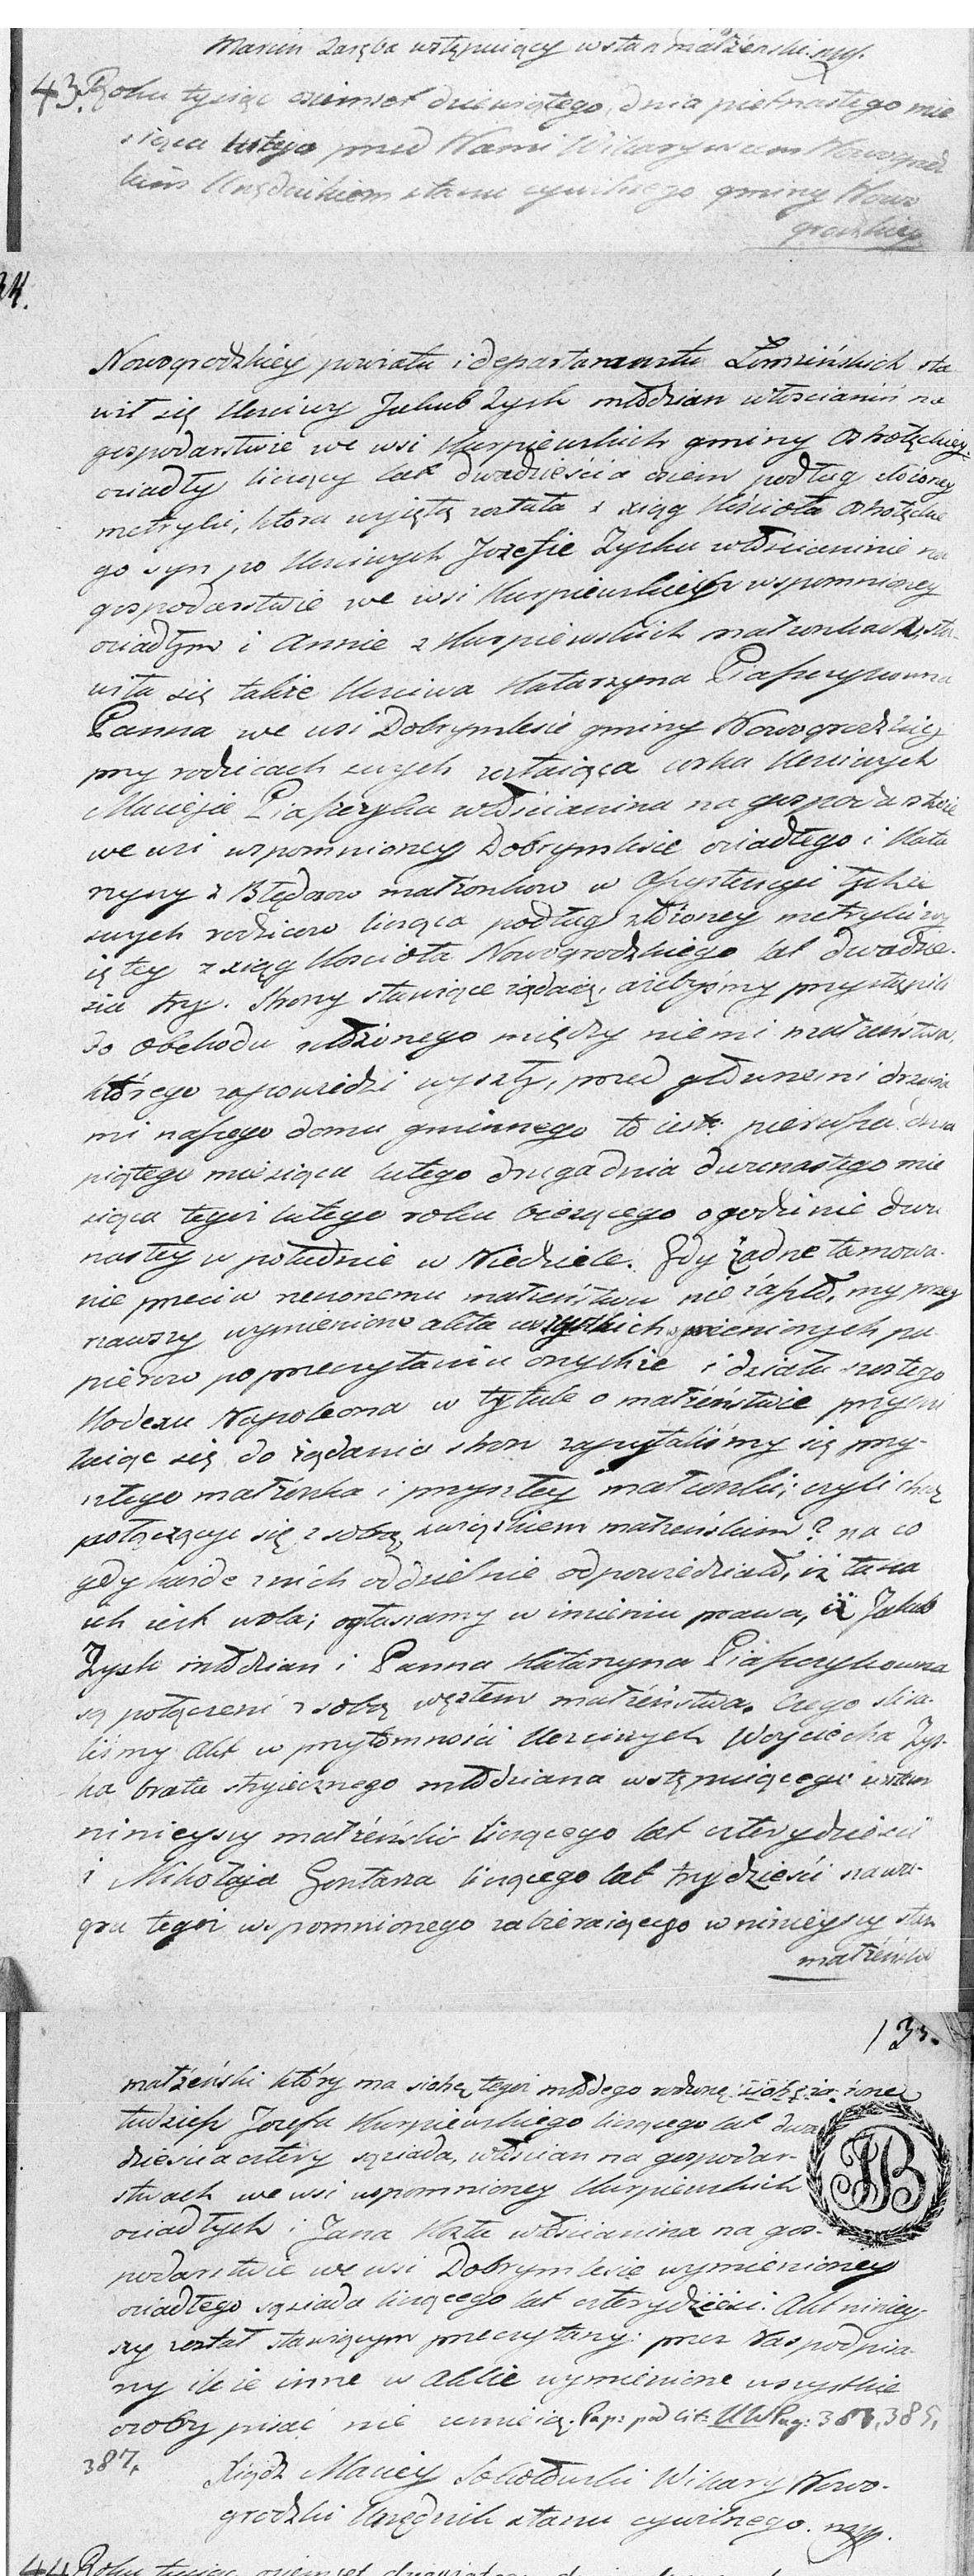 Marcin Zaręba wstępuiący w stan małżenski. mp.
43. Roku tysiąc osiemset dziewiątego, dnia piętnastego mie
siąca lutego przed Nami Wikaryuszem Nowogrodz
kim Urzędnikiem stanu cywilnego gminy Nowo
grodzkiey
Nowogrodzkiey powiatu i departamentu Łomżińskich sta
wił się Uczciwy Jakub Zysk młodzian włościanin na
gospodarstwie we wsi Kurpiewskich gminy Ostrołęckiey
osiadły liczący lat dwadzieścia osiem podług złożoney
metryki, ktora wyięta została z xiąg Kościoła Ostrołęckie
go syn po Uczciwych Jozefie Zysku włościaninie na
gospodarstwie we wsi Kurpiewskich wspomnioney
osiadłym i Annie z Kurpiewskich małżonkach, sta
wiła się także Uczciwa Katarzyna Piaszczykowna
Panna we wsi Dobrymlesie gminy Nowogrodzkiey
przy rodzicach swych zostaiąca corka Uczciwych
Macieja Piaszczyka włościanina na gospodarstwie
we wsi wspomnioney Dobrymlesie osiadłego i Kata
rzyny z Błędow małżonkow w assystencyi tychże
swych rodzicow licząca podług złożoney metryki wy
iętey z xiąg Kościoła Nowogrodzkiego lat dwadzie
scia trzy. Strony stawiące żądaią, ażebyśmy przystąpili
do obchodu ułożonego między niemi małżeństwa,
którego zapowiedzi wyszły, przed głównemi drzwia
mi naszego domu gminnego to iest: pierwsza dnia
piątego miesiąca lutego druga dnia dwunastego mie
siąca tegoż lutego roku bieżącego o godzinie dwu
nastey w południe w Niedziele. Gdy żadne tamowa
nie przeciw rzeczonemu małżeństwu nie zaszło, my przey
rzawszy wymienione akta wszystkich wymienionych pa
pierow po przeczytaniu onychże i działu szostego
Kodexu Napoleona w tytule o małżeństwie przychy
laiąc się do żądania stron zapytaliśmy się przy
szłego małżonka i przyszłey małżonki; czyli chcą
połączyć się z sobą związkiem małżeńskim? na co
gdy każde z nich oddzielnie odpowiedziało, iż taka
ich iest wola; ogłaszamy w imieniu prawa, iż Jakub
Zysk młodzian i Panna Katarzyna Piaszczykowna
są połączeni z sobą węzłem małżeństwa. Czego spisa
liśmy Akt w przytomności Uczciwych Woyciecha Zys
ka brata stryiecznego młodziana wstępuiącego w stan
ninieyszy małżeński liczącego lat czterydzieści
i Mikołaja Gontarza liczącego lat trzydzieści szwa
gra tegoż wspomnionego zabieraiącego w ninieyszy stan
małżeński
135.
małżeński który ma siostrę tegoż młodego rodzoną
tudzież Jozefa Kurpiewskiego liczącego lat dwa
dzieścia cztery sąsiada, włościan na gospodar
stwach we wsi wspomnioney Kurpiewskich
osiadłych i Jana Kozła włościanina na gos
podarstwie we wsi Dobrymlesie wymienioney
osiadłego sąsiada liczącego lat czterydzieści. Akt niniey
szy został stawiącym przeczytany przez Nas podpisa
ny ile że inne w Akcie wymienione wszystkie
osoby pisać nie umieią. Pap: pod Lit: UW Pag: 385,
387,
Xiądz Maciey Sokołowski Wikary Nowo
grodzki Urzędnik stanu cywilnego. mp.
44 Roku tysiąc osiemset dziewiątego